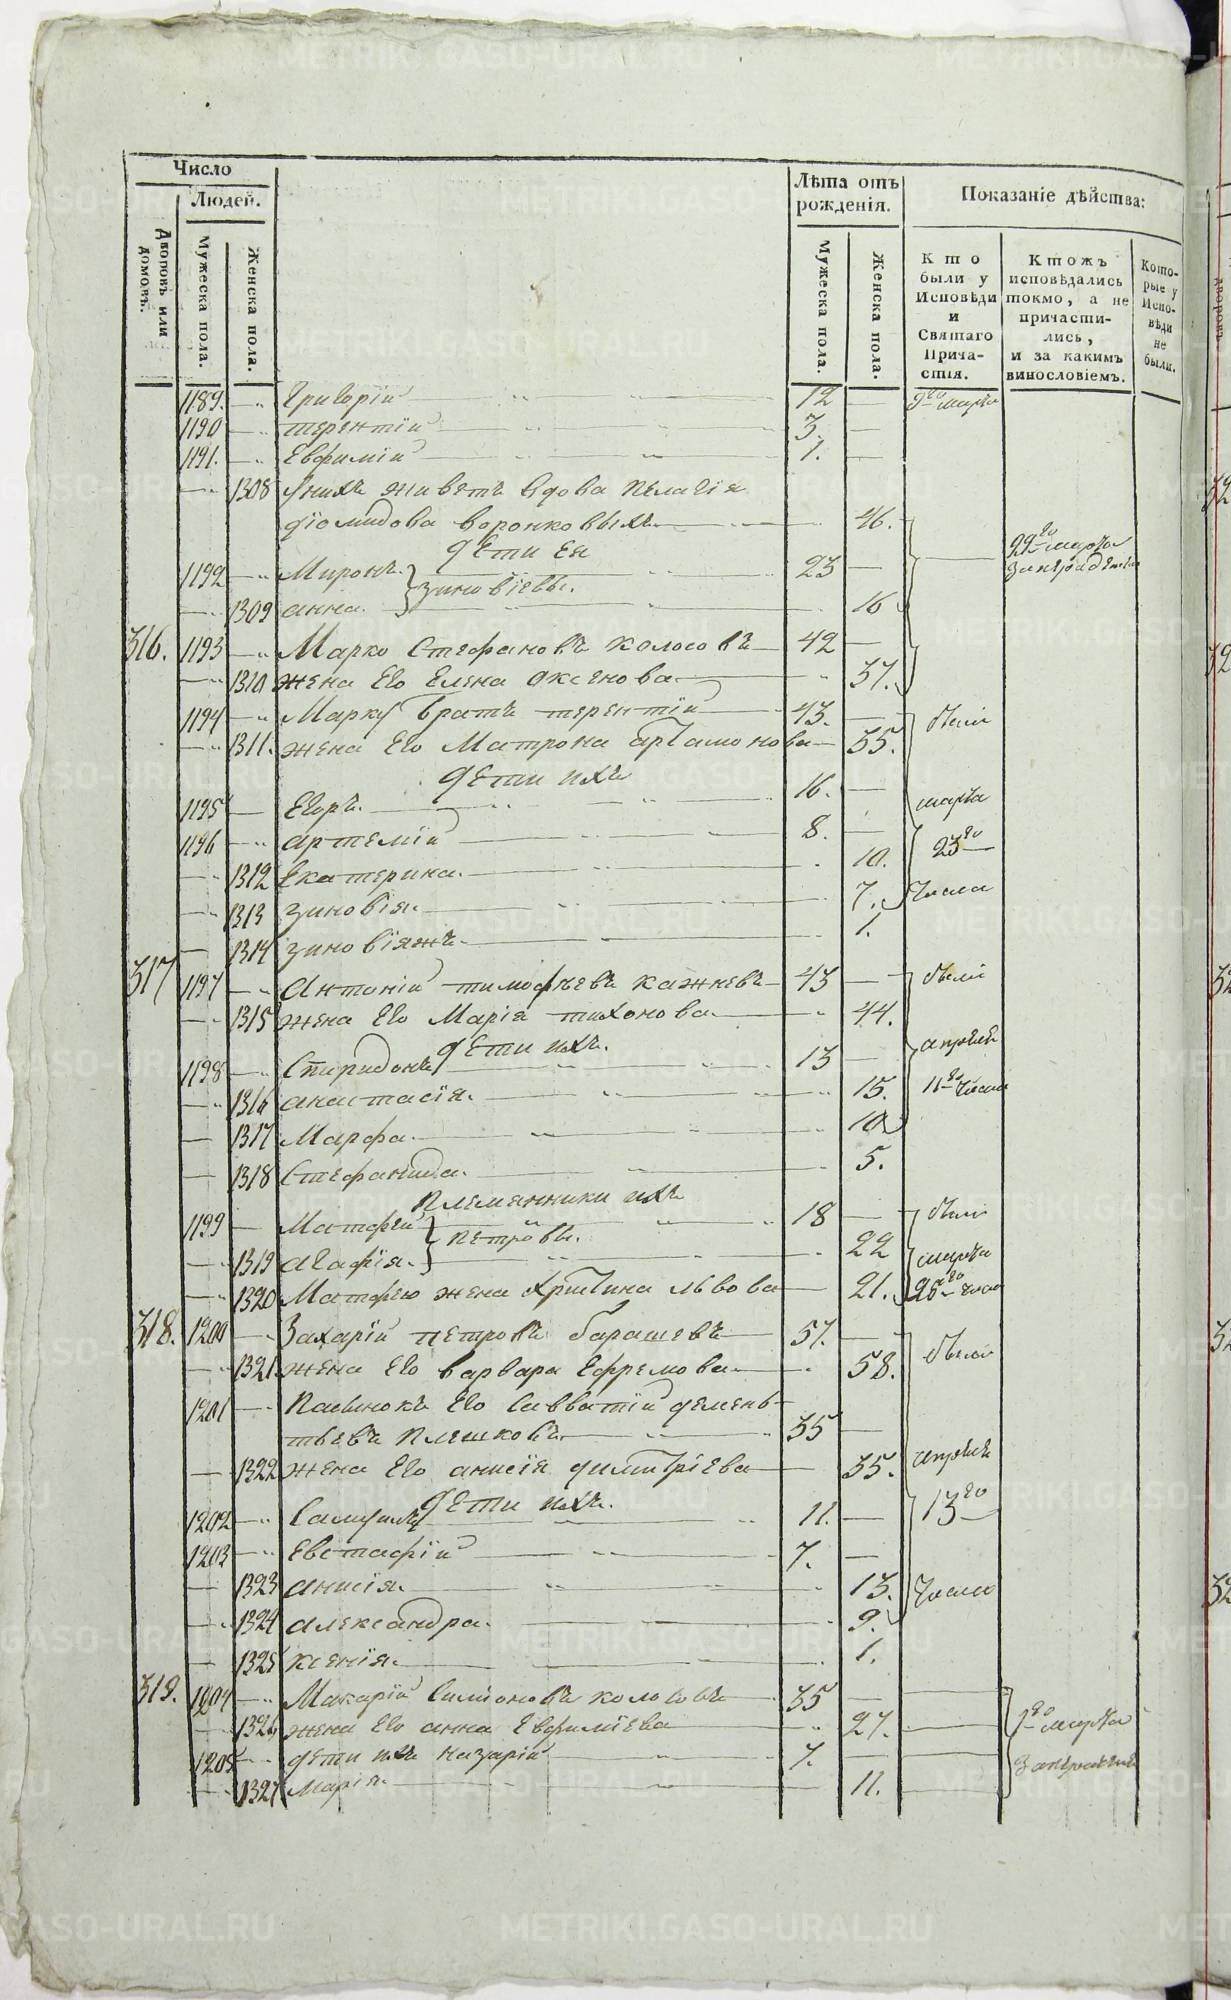 Число
Людей.
Лѣта отъ рожденія.
Показаніе дѣйства:
Дворовъ или домовъ.
Мужеска пола.
Женска пола.
Мужеска пола.
Женска пола.
Кто были у Исповѣди и Святаго Причастія.
Ктожъ исповѣдались токмо, а не причастились, и за какимъ винословіемъ.
Которые у Исповѣди не были.
1189. Григорій 12 9го марта
1190 терентій 3.
1191. Евфимій 1.
1308 Унихъ живетъ вдова Пелагія
діомидова воронковыхъ 46.
дети ея 22го марта
1192 Миронъ. 23
зиновіевы.
1309 анна. 16
316. 1193 Марко Стефановъ колосовъ 42
1310 жена Его Елена аксенова 37.
1194 Марку братъ терентій 43. были
1311. жена Его Матрона артамонова 35.
дети ихъ
1195 Егоръ. 16. марта
1196 артемій 8. 23го
1312 Екатерина. 10.
1313 зиновія. 7. числа
1314 зиновіяжъ 1.
317 1197 Антоній тимофѣевъ кажневъ 43 были
1315 жена Его Марія тихонова 44.
дети ихъ. апрѣля
1198 Спиридонъ 13
1316 анастасія. 15. 11го числа
1317 Марфа. 10
1318 Стефанида. 5.
племянники ихъ
1199 Матфей 18 были
петровы.
1319 агафія. 22 марта
1320 Матфею жена христина львова 21. 26го числа
318. 1200 Захарій петровъ барашевъ 57. были
1321. жена Его варвара Ефремова 58.
1201 Пасынокъ Его Савватій демень-
тьевъ Плешковъ 35
1322 жена Его анисія димитріева 35. апрѣля
дети ихъ.
1202 Самуилъ 11. 13го
1203 Евстафій 7.
1323 анисія. 13. числа
1324 александра. 9.
1325 ксенія. 1.
319. 1204 Макарій Симіоновъ колосовъ 35
1326 жена Его анна Евфиміева 27. марта
1205 дети ихъ назарій 7.
1327 Марія. 11.
METRIKI.GASO-URAL.RU